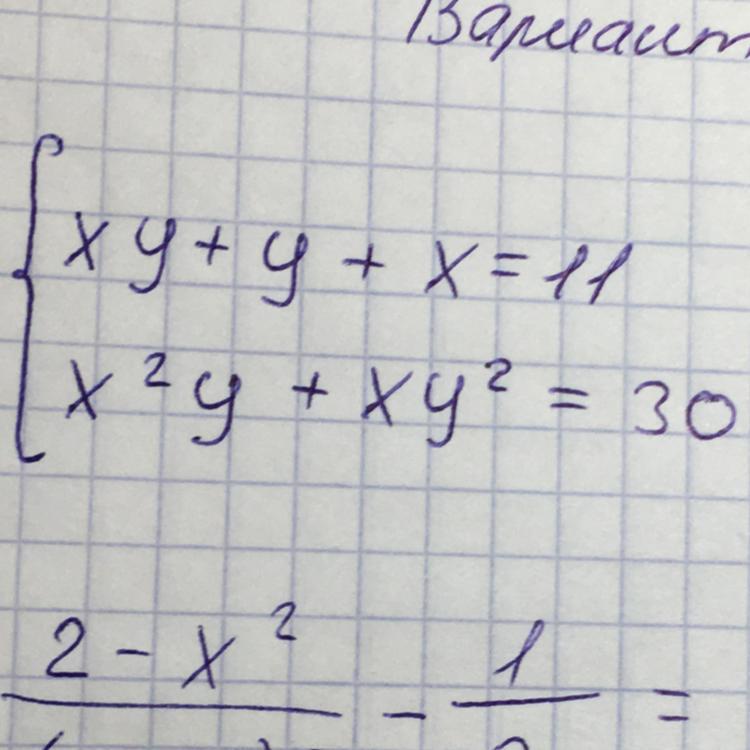 Вариант
xy + y + x = 11
x²y + xy² = 30
2 - x² / - 1 / =